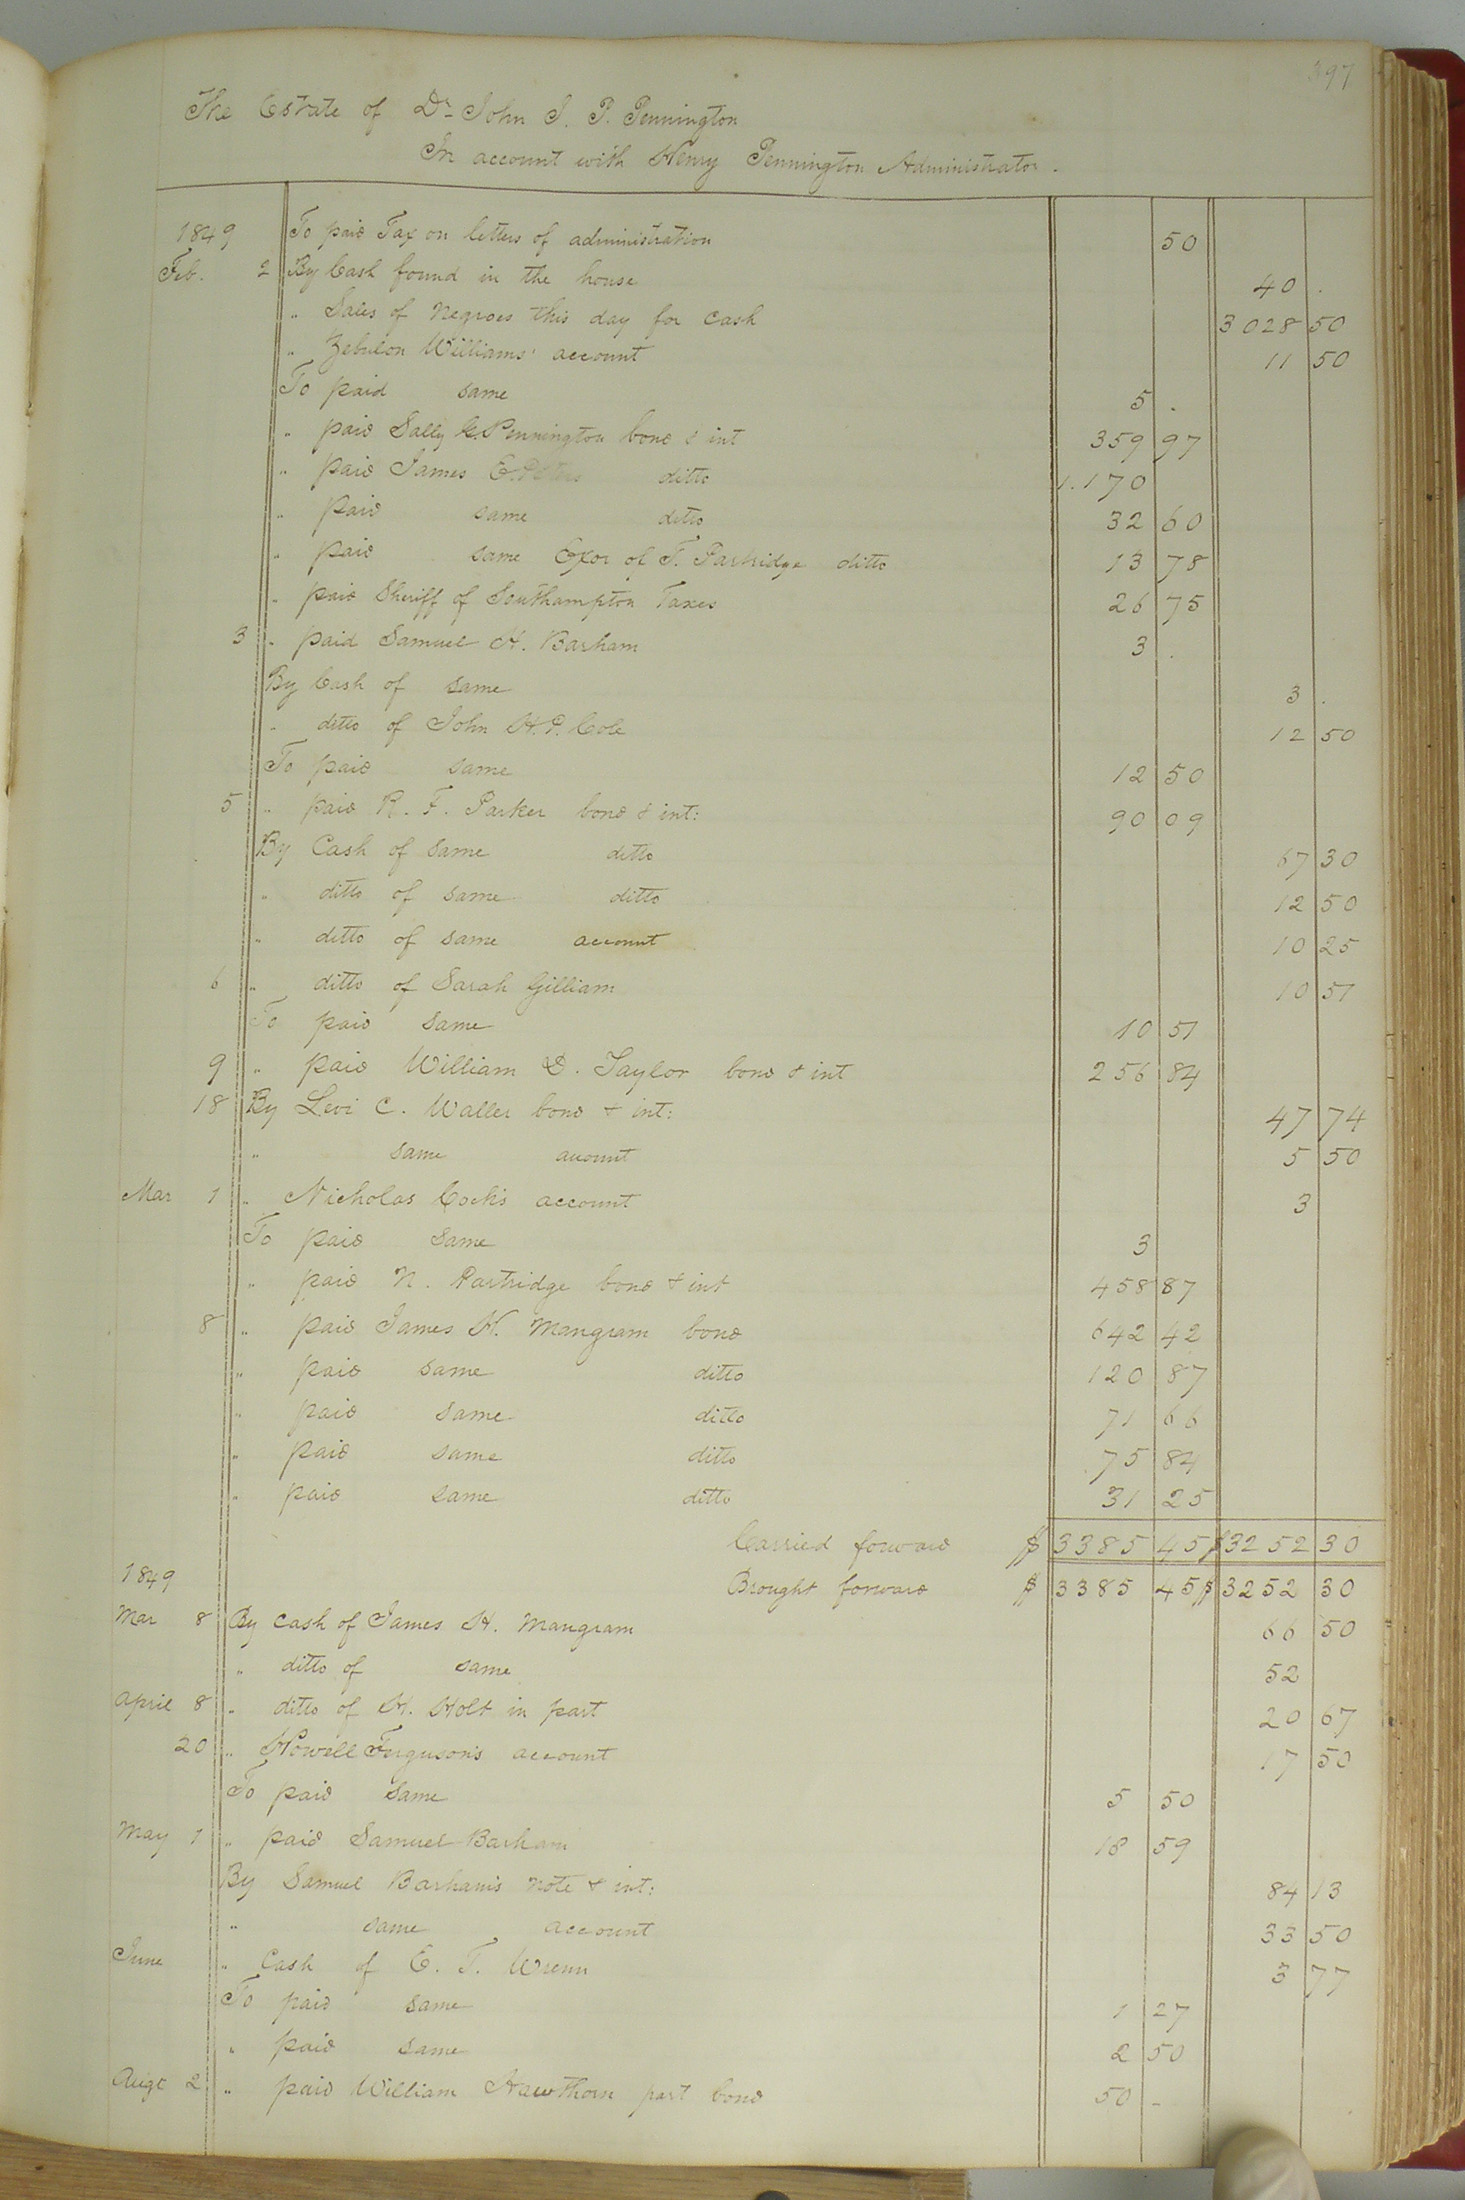 397
The Estate of Dr John J. P. Pennington
In account with Henry Pennington Administrator.
1849 To paid Tax on letters of administration 50
Feb. 2 By Cash found in the house 40 .
" Sales of Negroes this day for cash 3028 50
" Zebulon Williams' account 11 50
To paid same 5 .
" paid Sally G. Pennington bond & int 359 97
" paid James E. Peters ditto 1.170
" paid same ditto 32 60
" paid same Exor of T. Partridge ditto 13 78
" paid Sheriff of Southampton Taxes 26 75
3 " paid Samuel H. Barham 3 .
By Cash of same 3 .
" ditto of John H. P. Cole 12 50
To paid same 12 50
5 " paid R. F. Parker bond & int: 90 09
By Cash of same ditto 67 30
" ditto of same ditto 12 50
" ditto of same account 10 25
6 " ditto of Sarah Gilliam 10 51
To paid same 10 51
9 " paid William D. Taylor bond & int 256 84
18 By Levi C. Waller bond & int: 47 74
" same account 5 50
Mar 1 " Nicholas Cock's account 3
To paid same 3
" paid N. Partridge bond & int 458 87
8 " paid James H. Mangram bond 642 42
" paid same ditto 120 87
" paid same ditto 71 66
" paid same ditto 75 84
" paid same ditto 31 25
Carried forward $ 3385 45 $ 3252 30
1849 Brought forward $ 3385 45 $ 3252 30
Mar 8 By cash of James H. Mangram 66 50
" ditto of same 52
April 8 " ditto of H. Holt in part 20 67
20 " Howell Ferguson's account 17 50
To paid same 5 50
May 1 " paid Samuel Barham 18 59
By Samuel Barham's note & int: 84 13
" same account 33 50
June " Cash of E. T. Wrenn 3 77
To paid same 1 27
" paid same 2 50
Augt 2 " paid William Hawthorn part bond 50 -